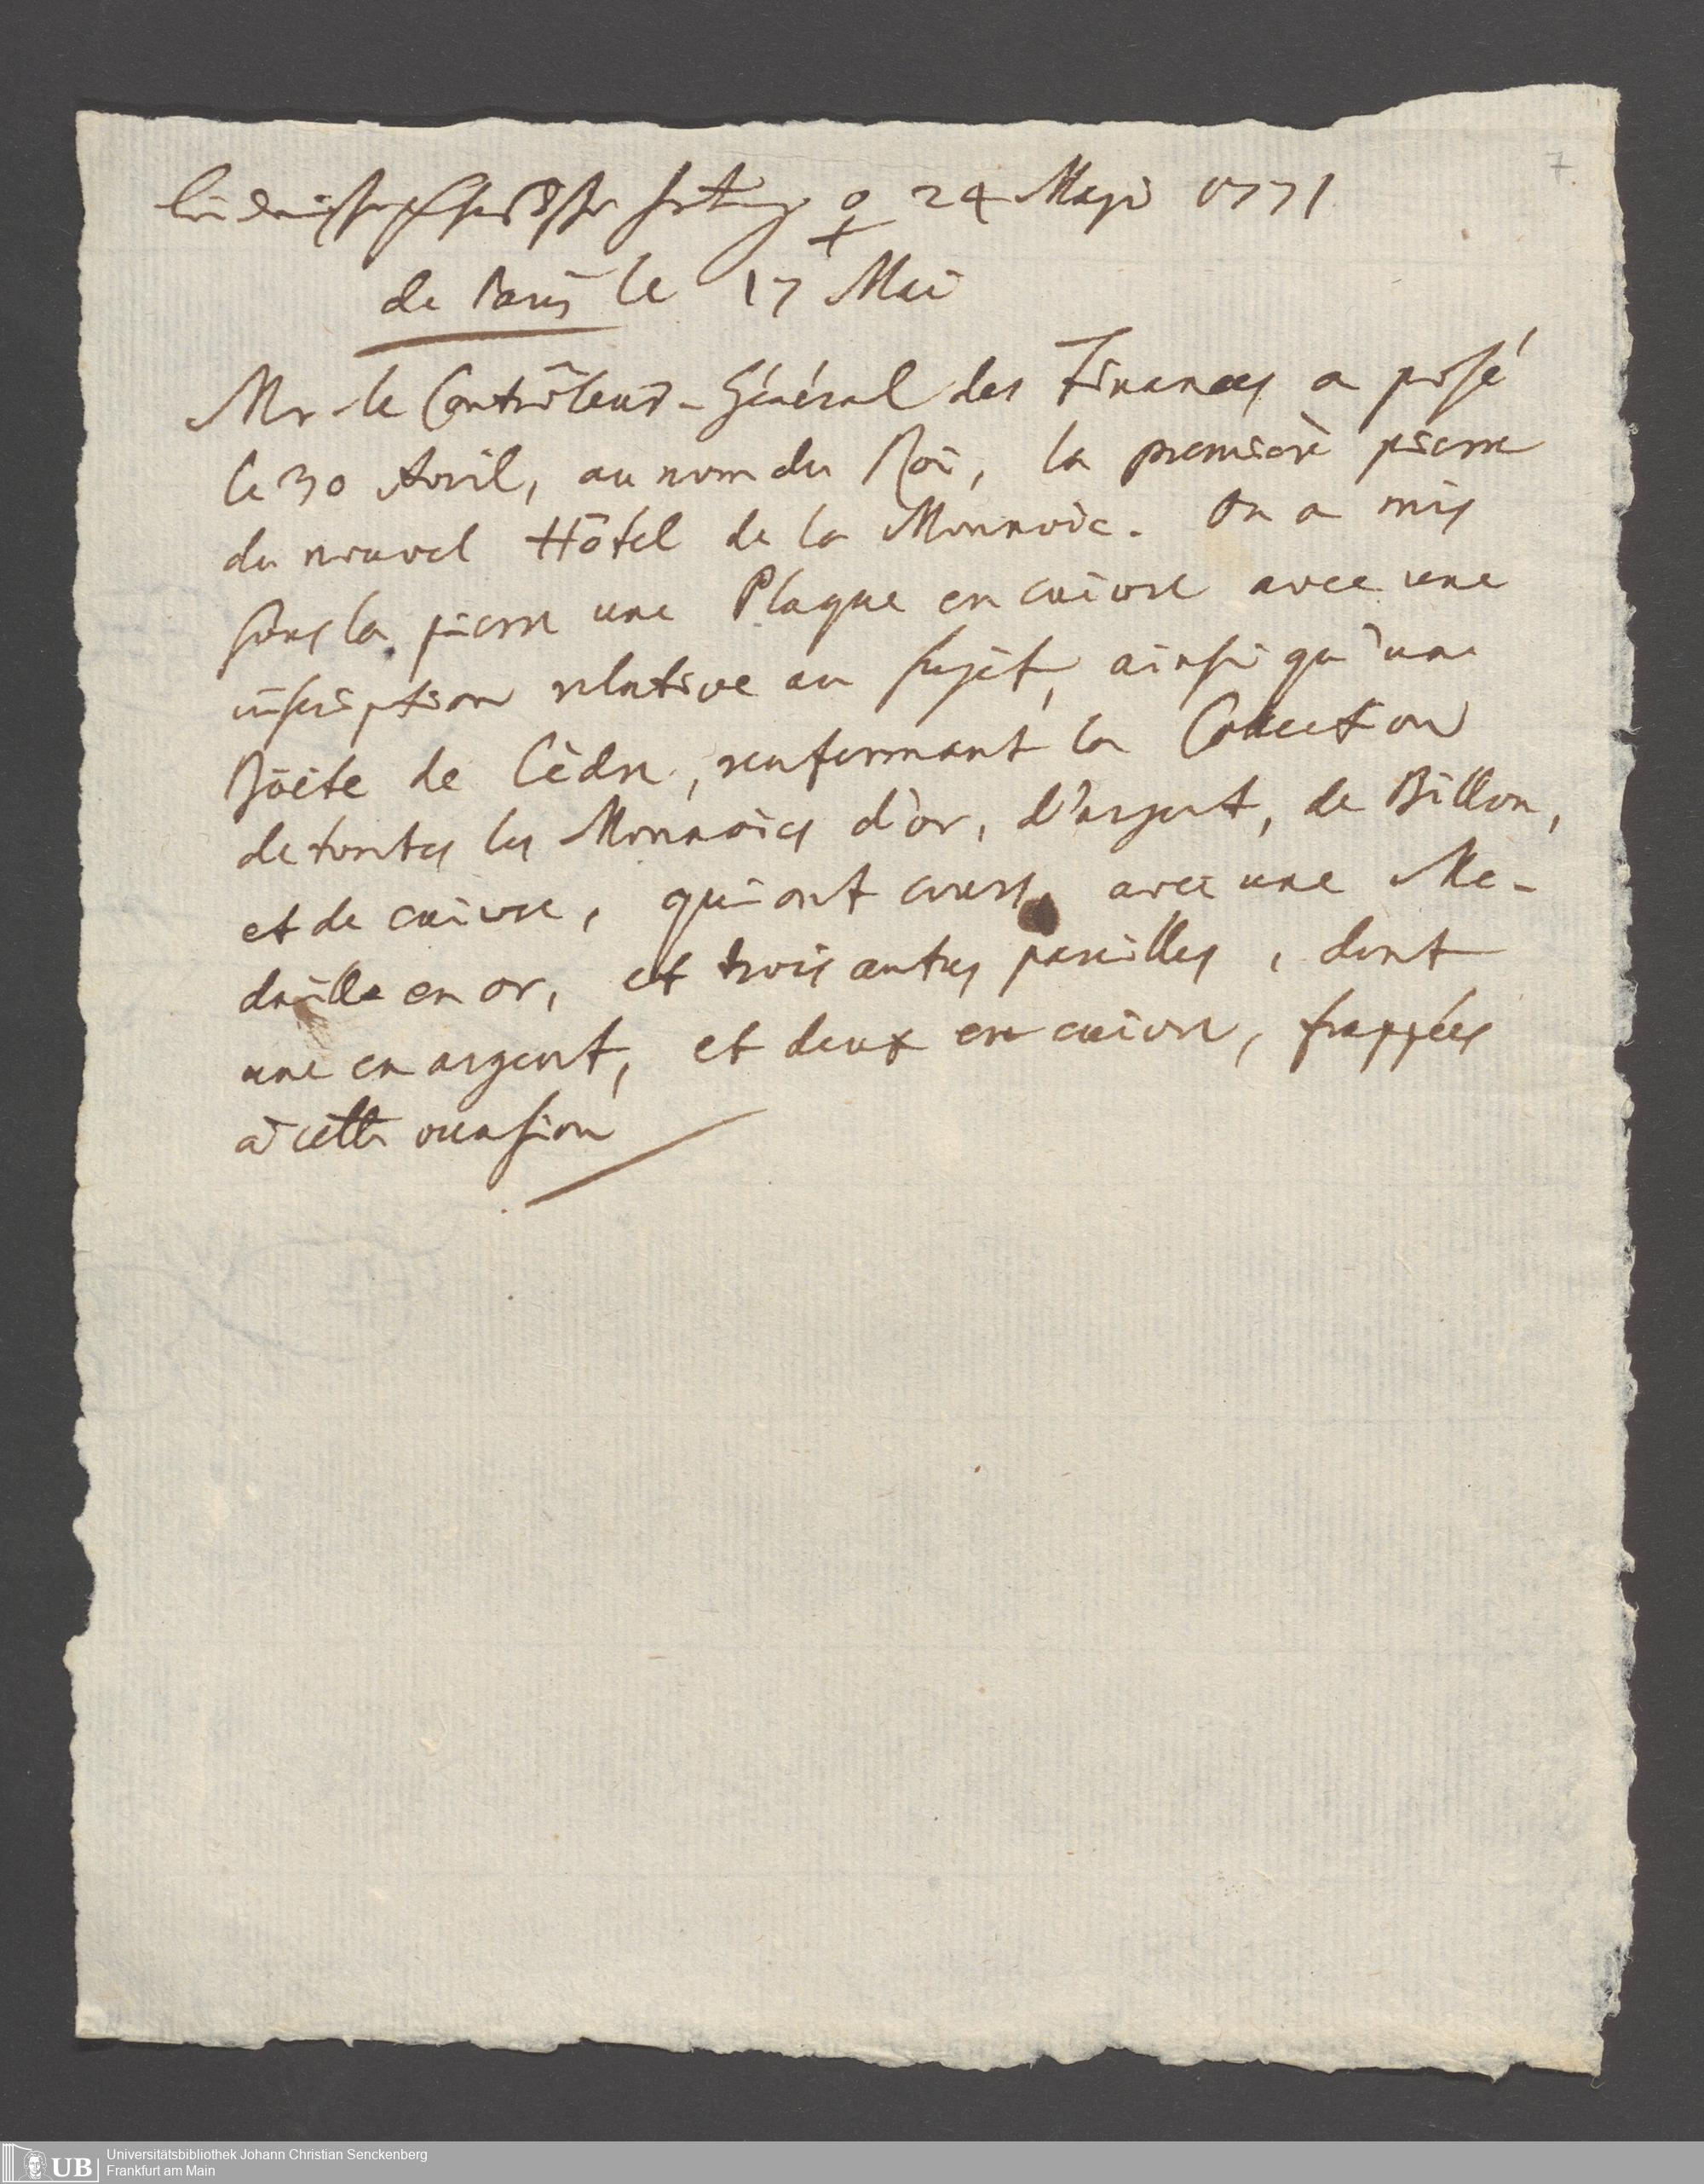 7
♀ 24 Maji 1771
de Paris le 17 Mai
Mr le Contrôleur-Général des Finances a posé
le 30 Avril, au nom du Roi, la premiere pierre
du nouvel Hôtel de la Monnoie. On a mis
sous la pierre une Plaque en cuivre avec une
inscription relative au sujet, ainsi qu'une
Boëte de Cèdre, renfermant la Collection
de toutes les Monnoies d'or, d'argent, de Billon,
et de cuivre, qui ont cours, avec une Me-
daille en or, et trois autres pareilles, dont
une en argent, et deux en cuivre, frappées
à cette occasion
UB Universitätsbibliothek Johann Christian Senckenberg
Frankfurt am Main